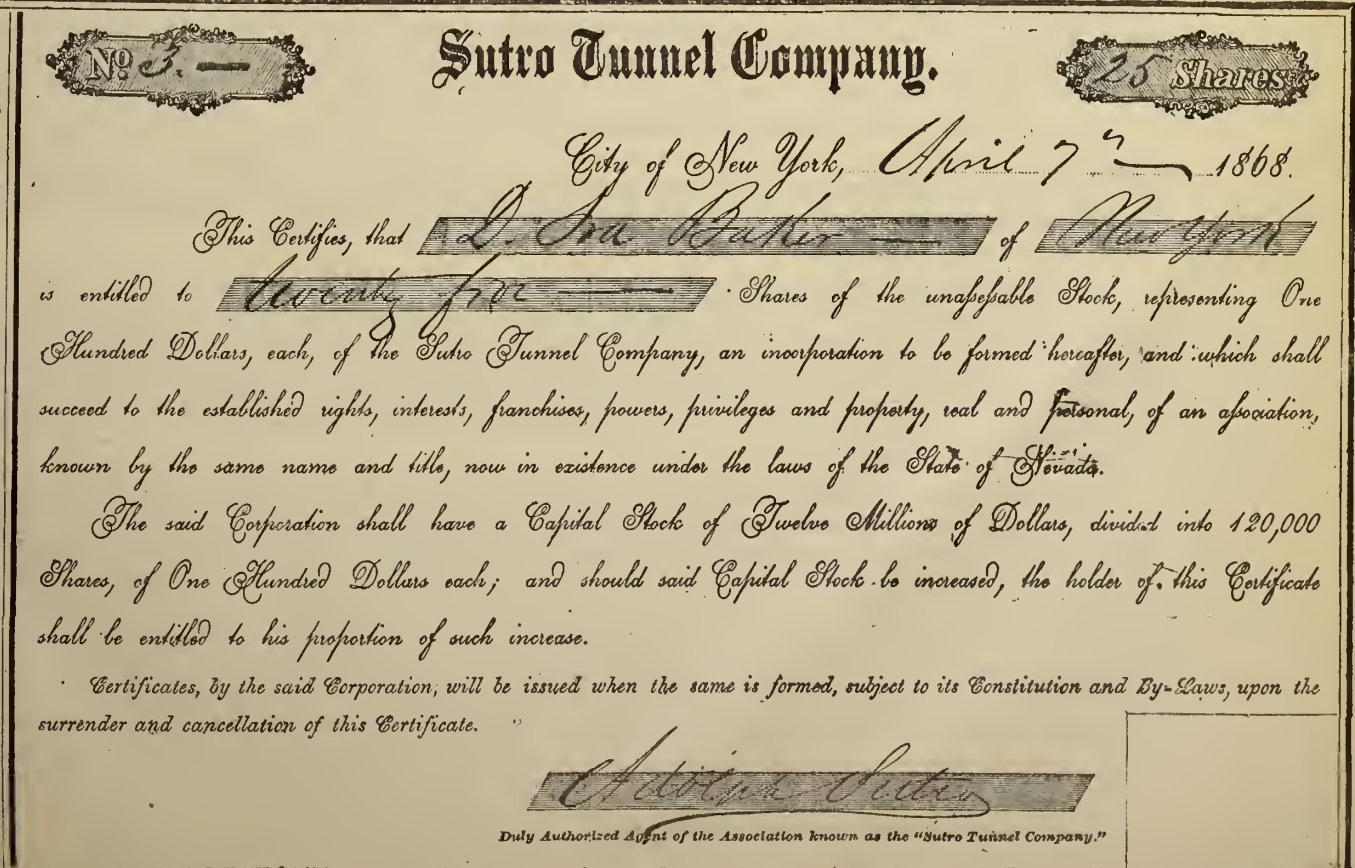 No 3. —
Sutro Tunnel Company.
25 Shares
City of New York, April 7th 1868.
This Certifies, that D. Ira Baker — of New York
is entitled to twenty five — Shares of the unassessable Stock, representing One
Hundred Dollars, each, of the Sutro Tunnel Company, an incorporation to be formed hereafter, and which shall
succeed to the established rights, interests, franchises, powers, privileges and property, real and personal, of an association,
known by the same name and title, now in existence under the laws of the State of Nevada.
The said Corporation shall have a Capital Stock of Twelve Millions of Dollars, divided into 120,000
Shares, of One Hundred Dollars each; and should said Capital Stock be increased, the holder of this Certificate
shall be entitled to his proportion of such increase.
Certificates, by the said Corporation, will be issued when the same is formed, subject to its Constitution and By-Laws, upon the
surrender and cancellation of this Certificate.
Adolph Sutro
Duly Authorized Agent of the Association known as the "Sutro Tunnel Company."